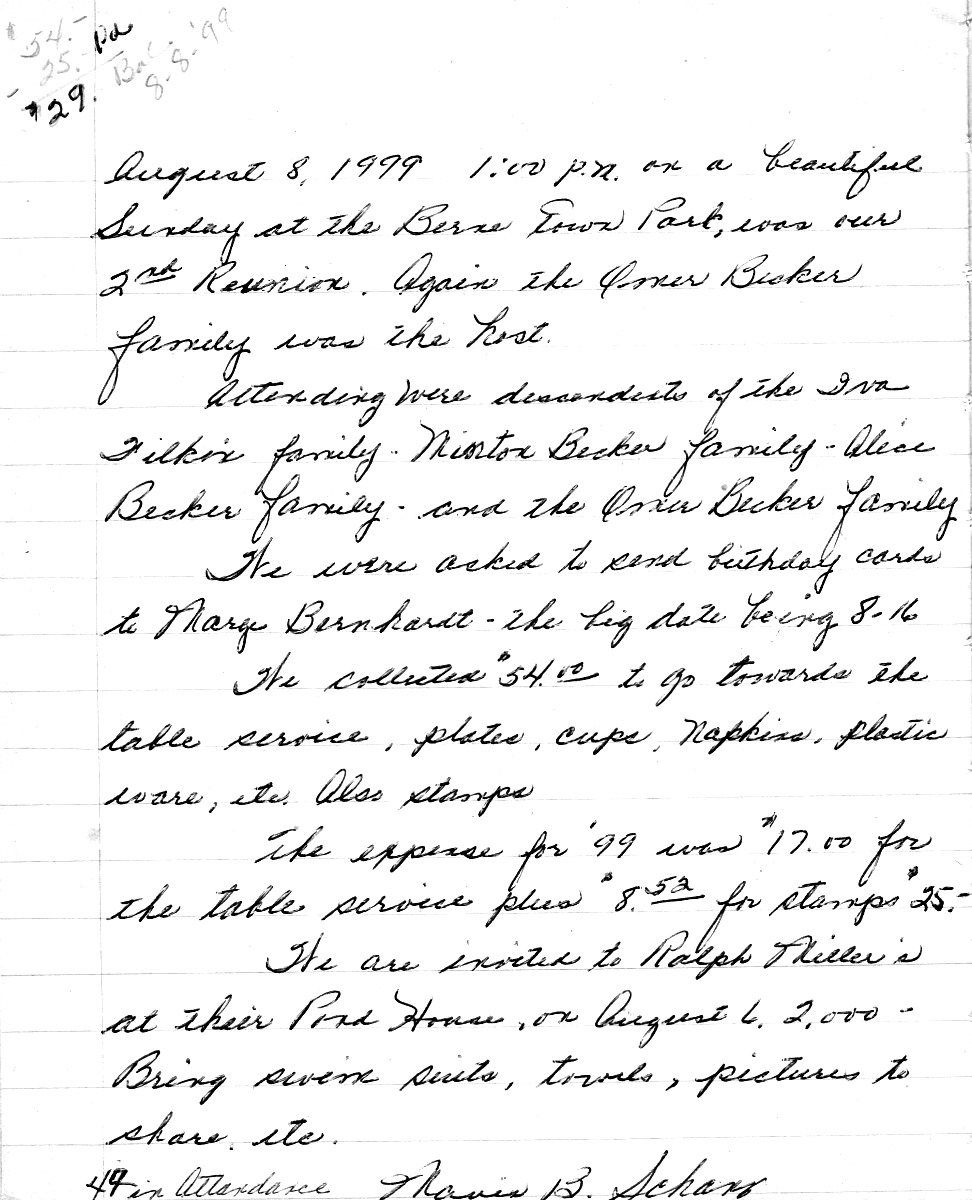 $54.-
25.- Pd
$29. Bal. 8-8-'99
August 8, 1999 1:00 P.M. on a beautiful
Sunday at the Berne Town Park, was our
2nd Reunion. Again the Omer Becker
family was the host.
Attending were descendents of the Iva
Filkin family - Minton Becker family - Alice
Becker family - and the Omer Becker family
We were asked to send birthday cards
to Marge Bernhardt - the big date being 8-16
We collected $54.00 to go towards the
table service, plates, cups, napkins, plastic
ware, etc. Also stamps
The expense for '99 was $17.00 for
the table service plus $8.52 for stamps $25.-
We are invited to Ralph Miller's
at their Pond House, on August 6, 2,000 -
Bring swim suits, towels, pictures to
share, etc.
49 in Attendance Mavis B.